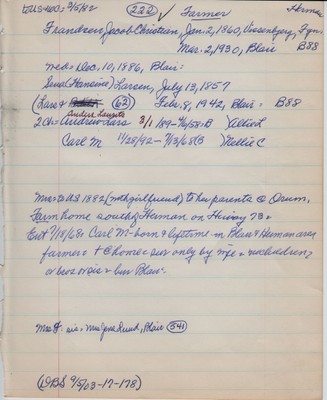 (222) ✓ Farmer Herman
Frandsen, Jacob Christian, Jan. 2, 1860, Fyn-
Mar. 2, 1930, Blair B88
med = Dec. 10, 1886, Blair =
Sena (Hansine) Larsen, July 13, 1857
(Lars & (62) Feb. 8, 1942, Blair = B88
2 ch = Andrew Lars 3/1/89- B
Carl M 11/28/92 - 7/13/68 B Nellie C
Mrs to US 1882 (with girl friend) to her parents @ Orum,
Farm home south of Herman on Hiway 73 =
7/18/68 = Carl M - born & lifetime in Blair & Herman area
farmer = @ home = sur only by wife = no children,
or bros or sis = bur Blair =
Mrs F. sis = Mrs Jens Lund, Blair (541)
(DBS 9/5/03-17-178)